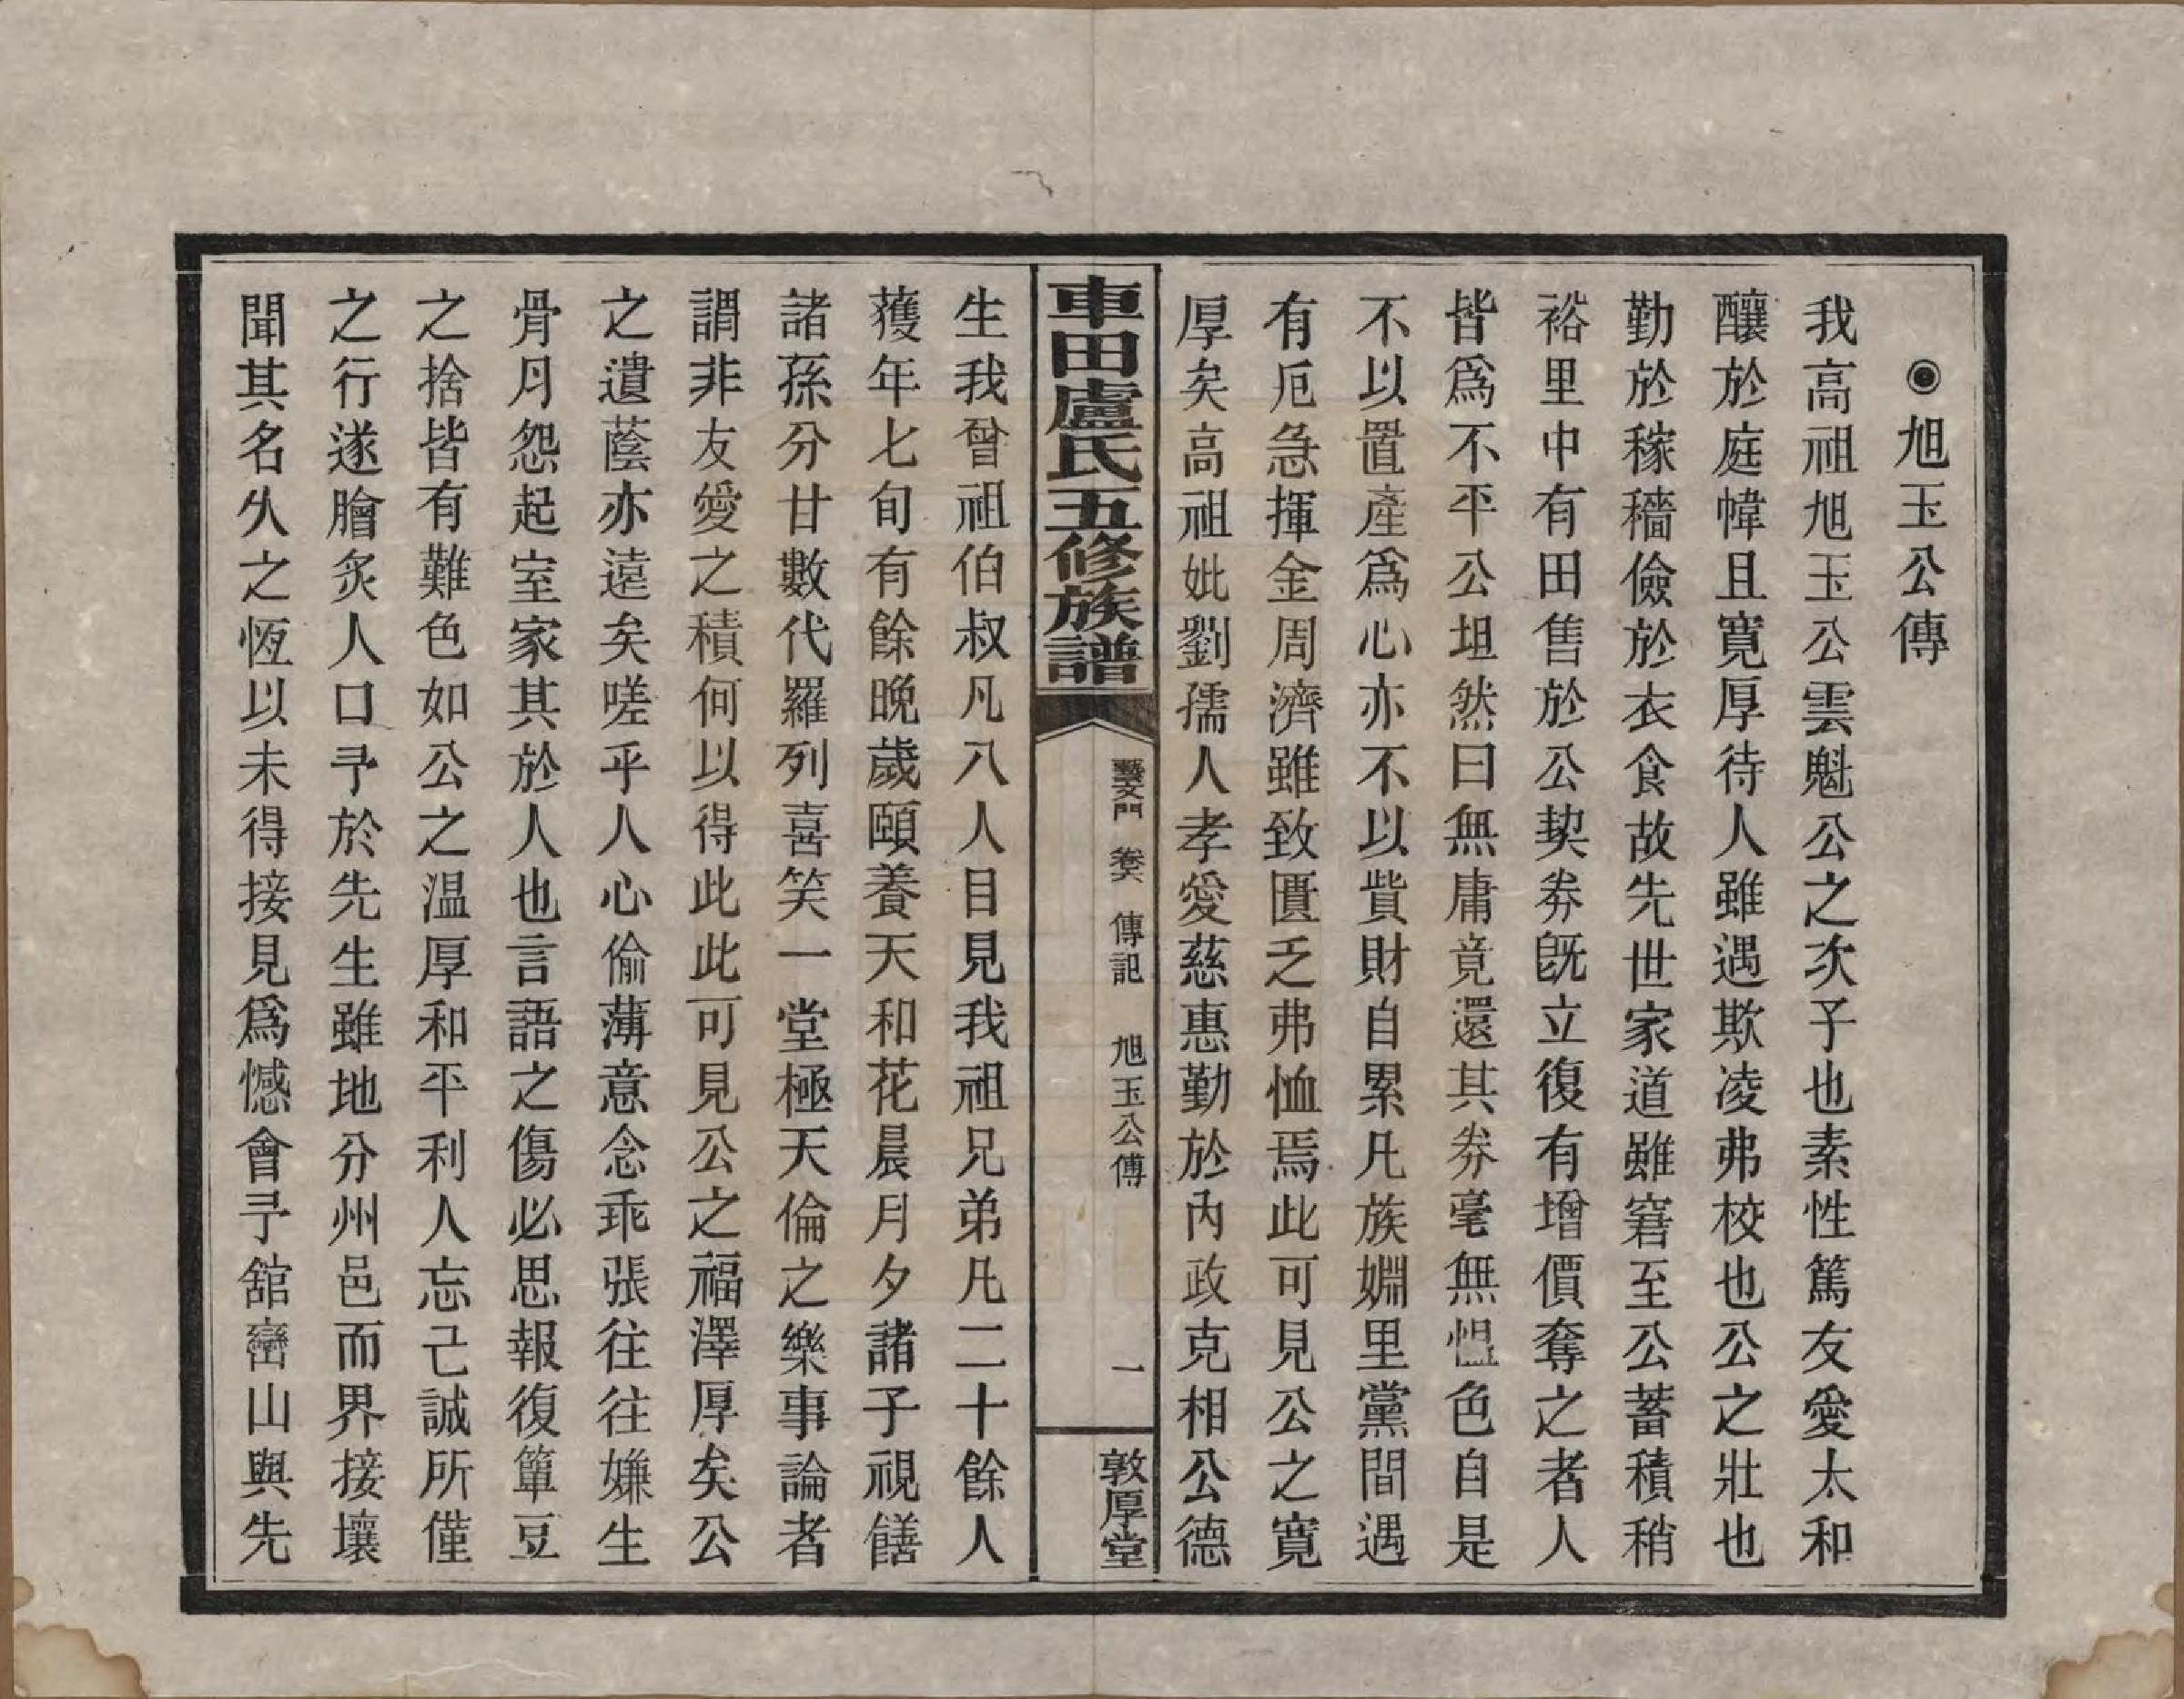 ◉旭玉公傳
我高祖旭玉公雲魁公之次子也素性篤友愛太和
釀於庭幃且寬厚待人雖遇欺凌弗校也公之壯也
勤於稼穡儉於衣食故先世家道雖窘至公蓄積稍
裕里中有田售於公契券旣立復有增價奪之者人
皆爲不平公坦然曰無庸竟還其券毫無慍色自是
不以置產爲心亦不以貲財自累凡族婣里黨間遇
有厄急揮金周濟雖致匱乏弗恤焉此可見公之寬
厚矣高祖妣劉孺人孝愛慈惠勤於內政克相公德
車田盧氏五修族譜
藝文門 卷六 傳記 旭玉公傳 一
敦厚堂
生我曾祖伯叔凡八人目見我祖兄弟凡二十餘人
獲年七旬有餘晚歲頤養天和花晨月夕諸子視饍
諸孫分甘數代羅列喜笑一堂極天倫之樂事論者
謂非友愛之積何以得此此可見公之福澤厚矣公
之遺蔭亦遠矣嗟乎人心偷薄意念乖張往往嫌生
骨月怨起室家其於人也言語之傷必思報復簞豆
之捨皆有難色如公之温厚和平利人忘己誠所僅
之行遂膾炙人口予於先生雖地分州邑而界接壤
聞其名久之恆以未得接見爲憾會予舘巒山與先